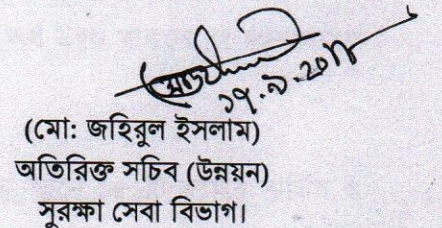 (মো: জহিরুল ইসলাম)
অতিরিক্ত সচিব (উন্নয়ন)
সুরক্ষা সেবা বিভাগ।